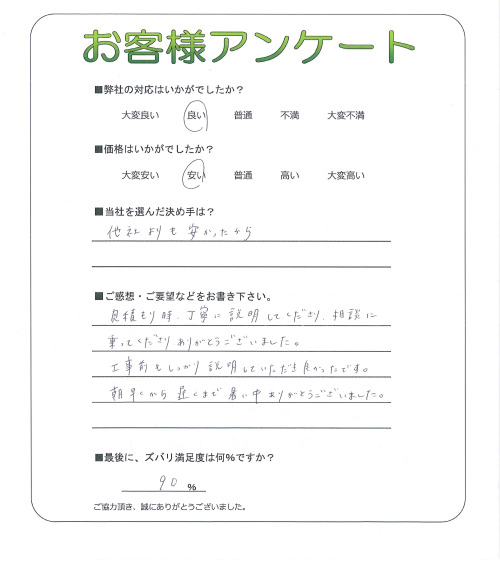 お客様アンケート
■弊社の対応はいかがでしたか？
大変良い 良い 普通 不満 大変不満
■価格はいかがでしたか？
大変安い 安い 普通 高い 大変高い
■当社を選んだ決め手は？
他社よりも安かったから
■ご感想・ご要望などをお書き下さい。
見積もり時、丁寧に説明してくださり、相談に
乗ってくださりありがとうございました。
工事前もしっかり説明していただき良かったです。
朝早くから遅くまで暑い中ありがとうございました。
■最後に、ズバリ満足度は何%ですか？
90 %
ご協力頂き、誠にありがとうございました。